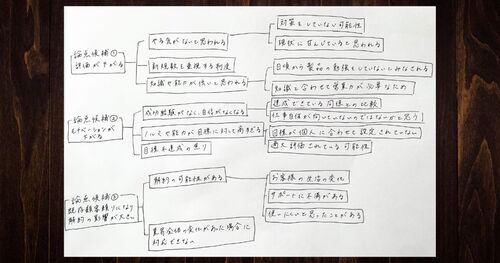 論点候補①
評価が下がる
やる気がないと思われる
対策をしていない可能性
現状に甘んじていると思われる
新規数を重視する制度
知識や能力が低いと思われる
日頃から製品の勉強をしていないとみなされる
知識と合わせて営業力が必要なため
論点候補②
モチベーションが
下がる
成功体験がなく、自信がなくなる
達成できている同僚との比較
仕事自体が向いていないのではないかと思う
ノルマや能力が目標に対して高すぎる
目標が個人に合わせて設定されていない
過大評価されている可能性
目標不達成の焦り
論点候補③
既存顧客頼りになり
解約の影響が大きい
解約の可能性がある
お客様の生活の変化
サポートに不満がある
使いにくいと思ったことがある
業界全体の変化があった場合に
対応できない